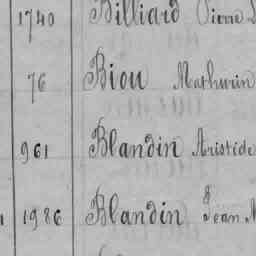 1740 Billiard Pierre
76 Biou Mathurin
961 Blandin Aristide
1986 Blandin Jean